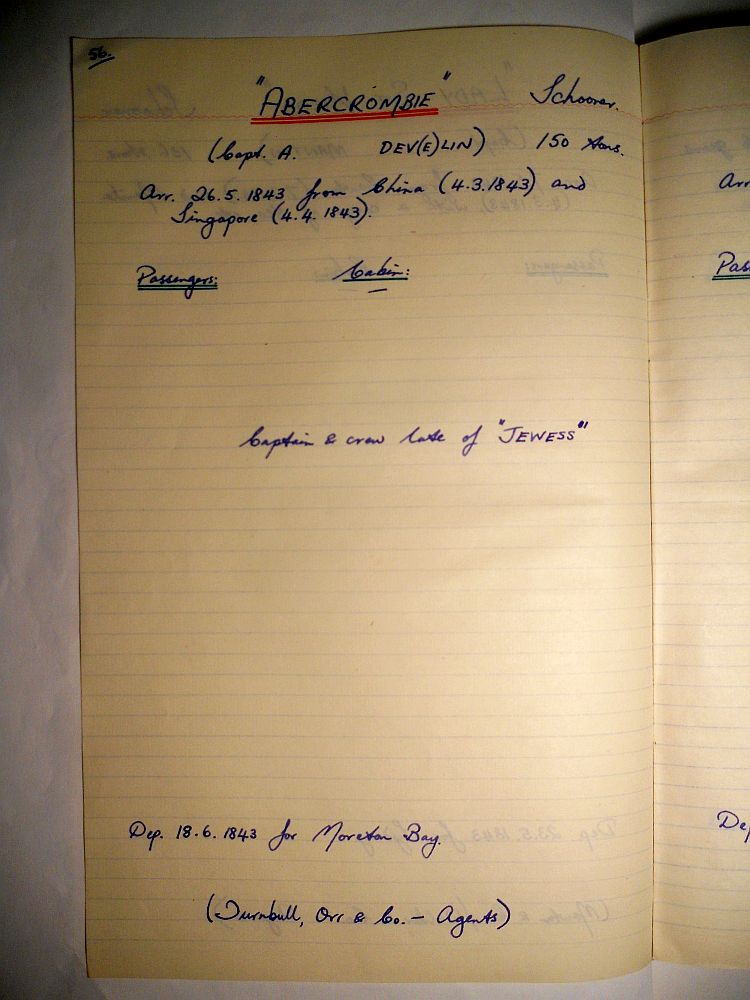 56.
"ABERCROMBIE" Schooner.
(Capt. A. DEV(E)LIN) 150 tons.
Arr. 26.5.1843 from China (4.3.1843) and
Singapore (4.4.1843).
Passengers: Cabin:
Captain & crew late of "JEWESS"
Dep. 18.6.1843 for Moreton Bay.
(Turnbull, Orr & Co. - Agents)
Arr
Pas
Dep